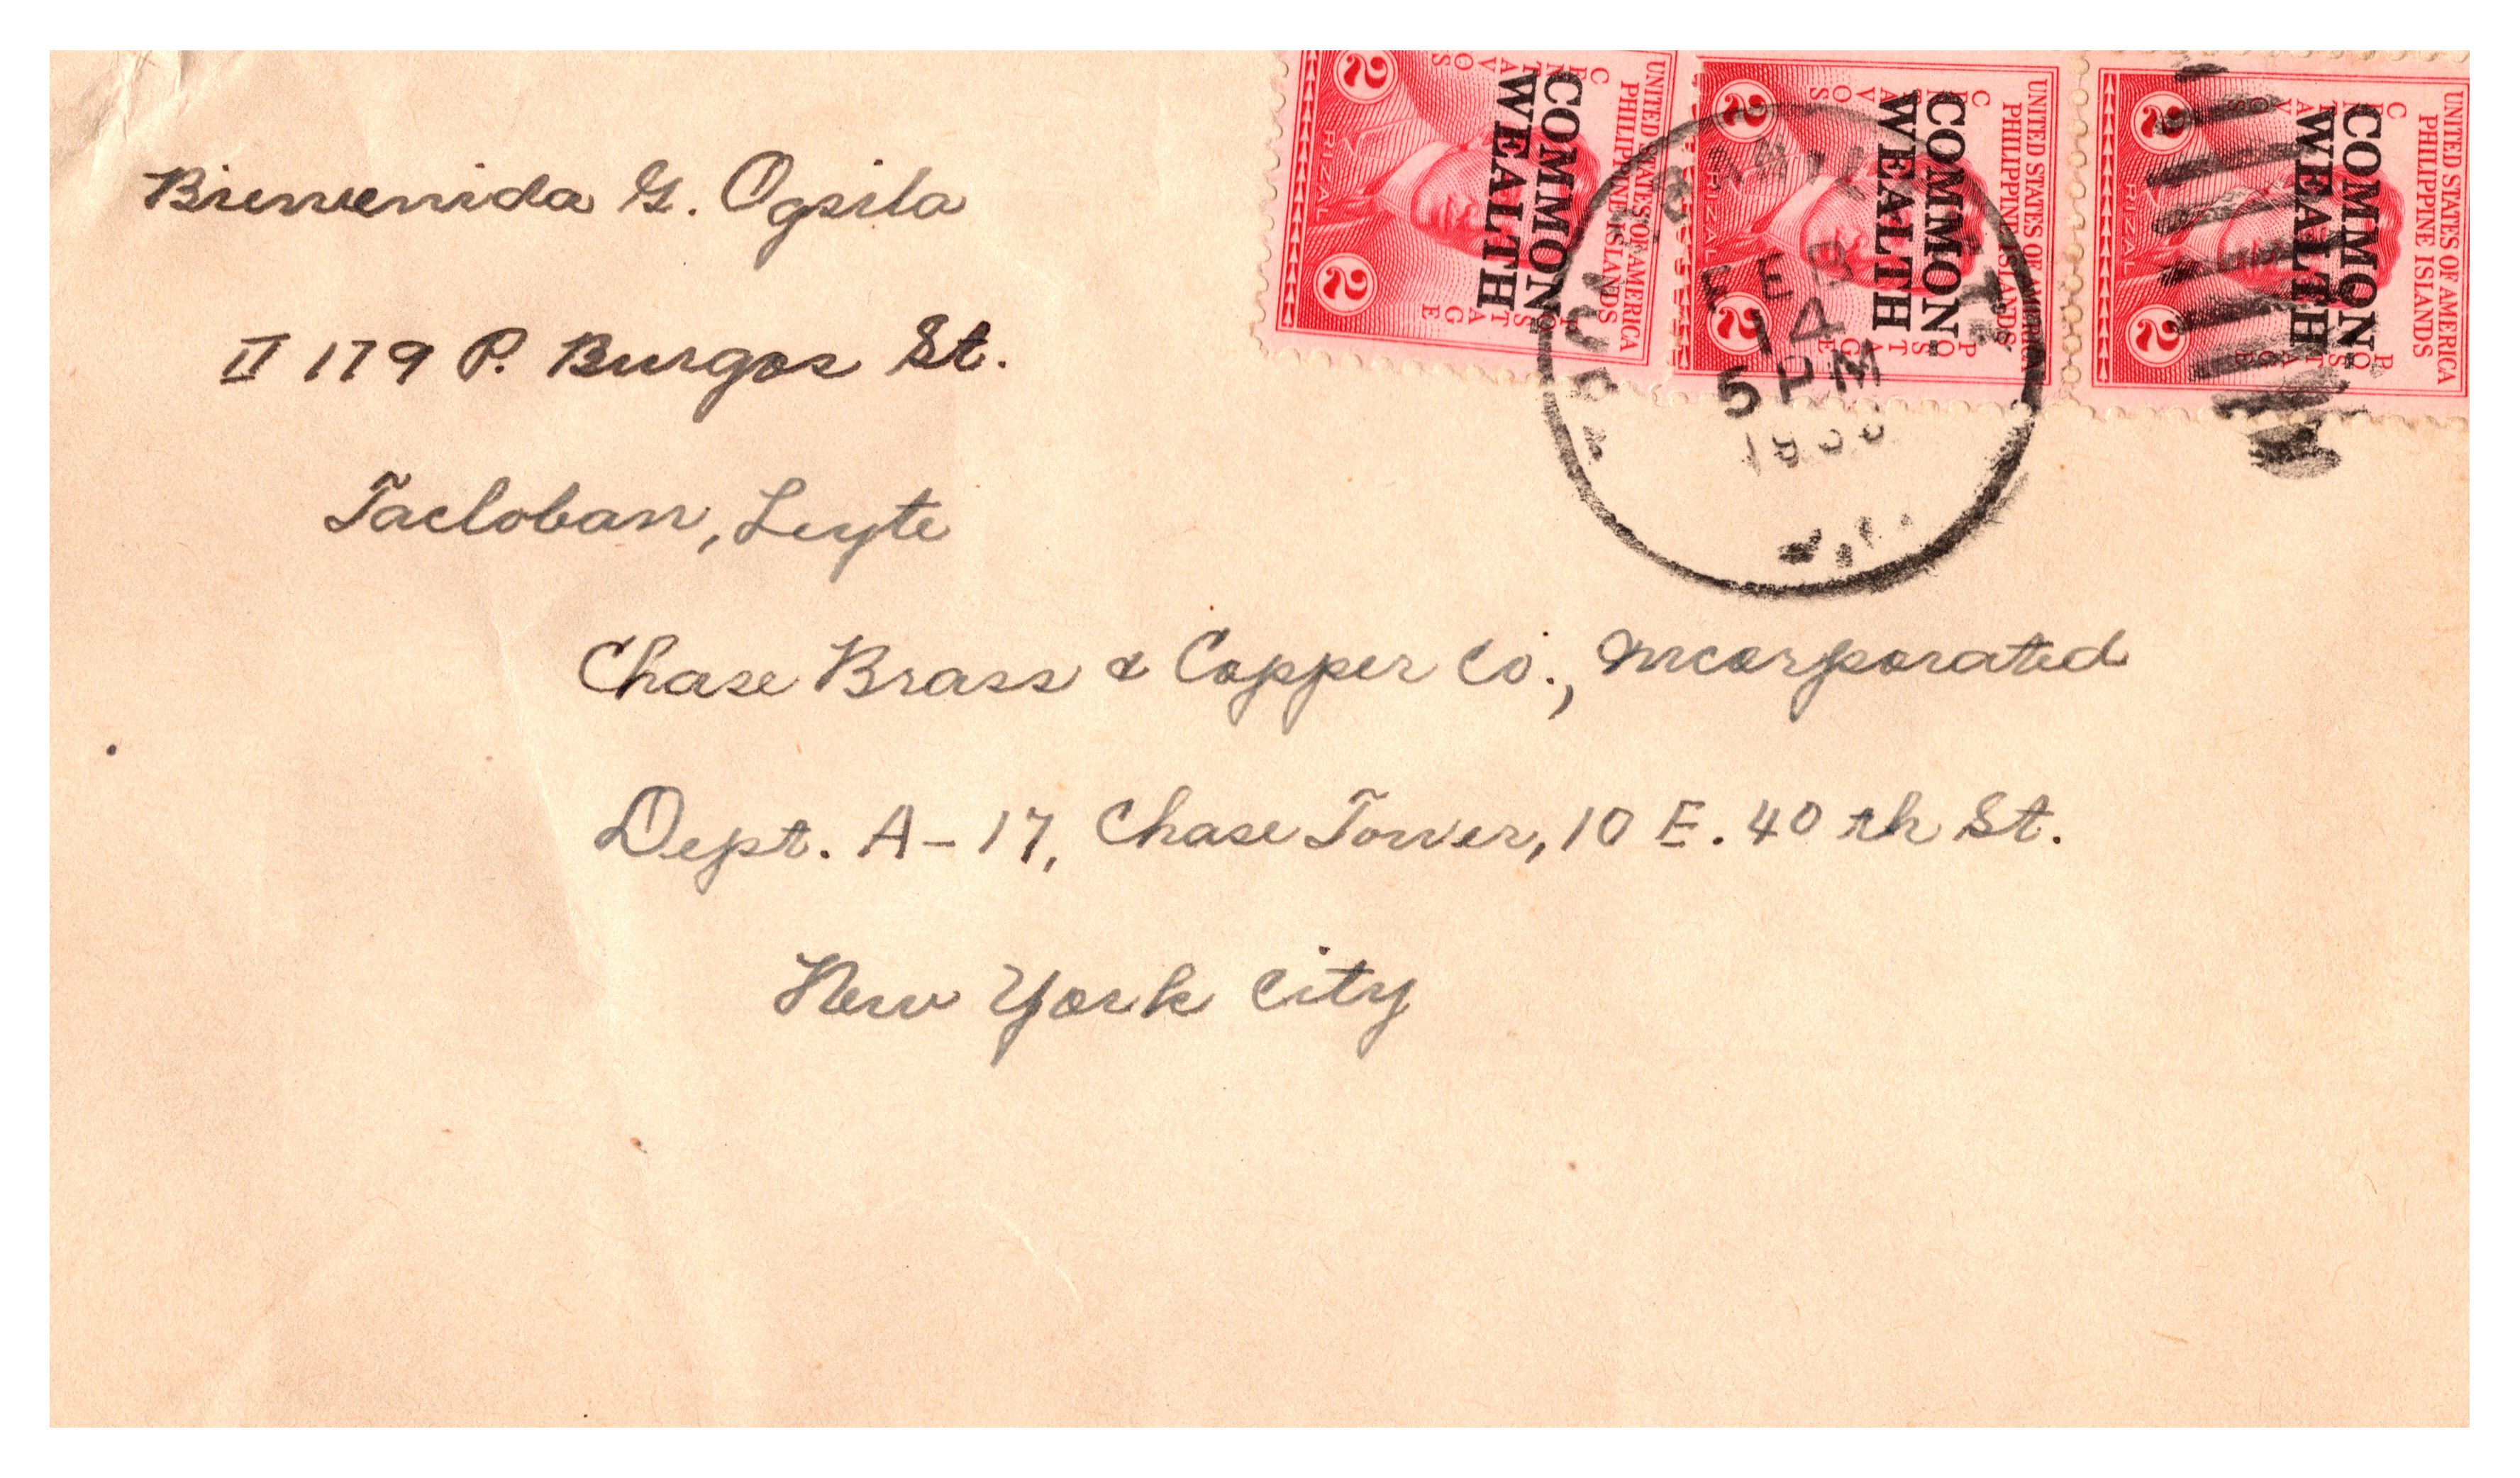 Bienvenida G. Ogsila
II 179 P. Burgos St.
Tacloban, Leyte
Chase Brass & Copper Co., Incorporated
Dept. A-17, Chase Tower, 10 E. 40th St.
New York City
UNITED STATES OF AMERICA
PHILIPPINE ISLANDS
CENTAVOS
POSTAGE
COMMON-
WEALTH
RIZAL
2 2
UNITED STATES OF AMERICA
PHILIPPINE ISLANDS
CENTAVOS
POSTAGE
COMMON-
WEALTH
RIZAL
2 2
UNITED STATES OF AMERICA
PHILIPPINE ISLANDS
CENTAVOS
POSTAGE
COMMON-
WEALTH
RIZAL
2 2
FEB
14
5 PM